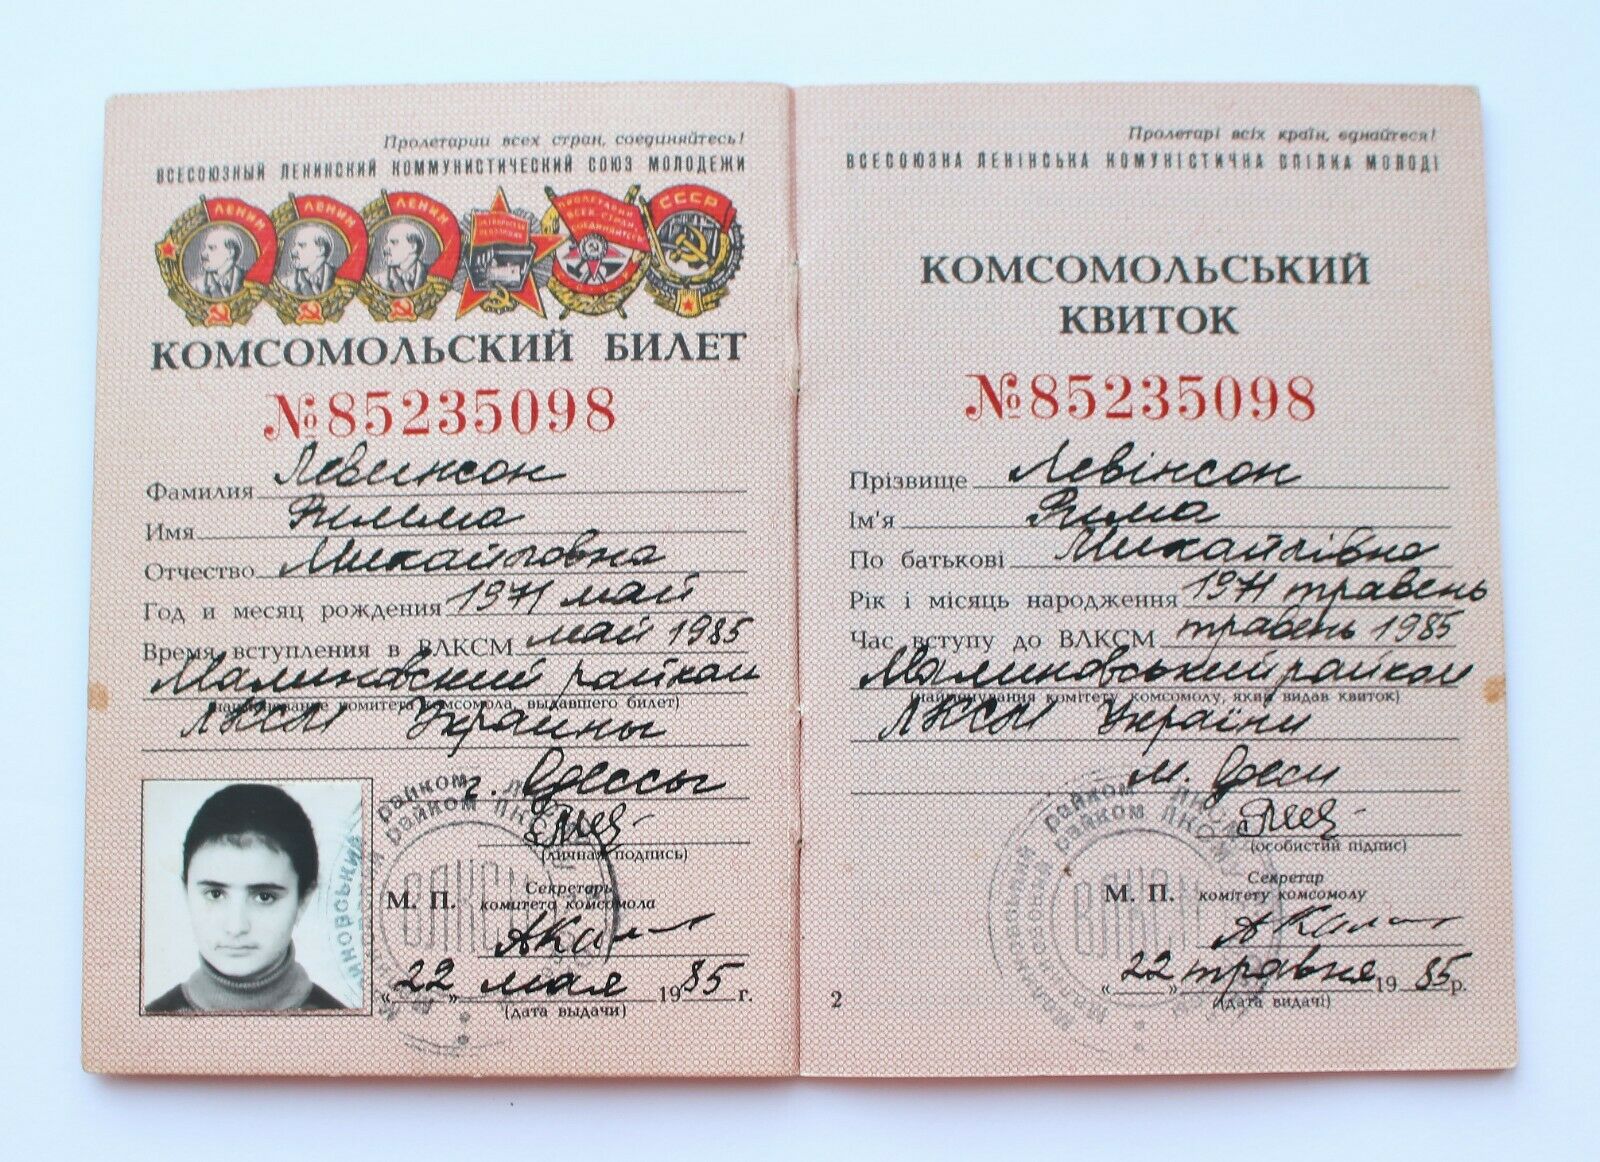 Пролетарии всех стран, соединяйтесь!
ВСЕСОЮЗНЫЙ ЛЕНИНСКИЙ КОММУНИСТИЧЕСКИЙ СОЮЗ МОЛОДЕЖИ
ЛЕНИН ЛЕНИН ЛЕНИН
ПРОЛЕТАРИИ ВСЕХ СТРАН СОЕДИНЯЙТЕСЬ!
СССР
КОМСОМОЛЬСКИЙ БИЛЕТ
№85235098
Фамилия Левинсон
Имя
Отчество Михайловна
Год и месяц рождения 1971 май
Время вступления в ВЛКСМ май 1985
Малиновский райком
(наименование комитета комсомола, выдавшего билет)
ЛКСМ Украины
г. Одессы
(личная подпись)
М. П.
Секретарь
комитета комсомола
ВЛКСМ
„22„ мая 1985 г.
(дата выдачи)
Пролетарі всіх країн, єднайтеся!
ВСЕСОЮЗНА ЛЕНІНСЬКА КОМУНІСТИЧНА СПІЛКА МОЛОДІ
КОМСОМОЛЬСЬКИЙ
КВИТОК
№85235098
Прізвище Левінсон
Ім'я Рима
По батькові Михайлівна
Рік і місяць народження 1971 травень
Час вступу до ВЛКСМ травень 1985
Малиновський райком
(найменування комітету комсомолу, який видав квиток)
ЛКСМ України
м. Одеси
(особистий підпис)
М. П.
Секретар
комітету комсомолу
ВЛКСМ
„22„ травня 1985 р.
(дата видачі)
2